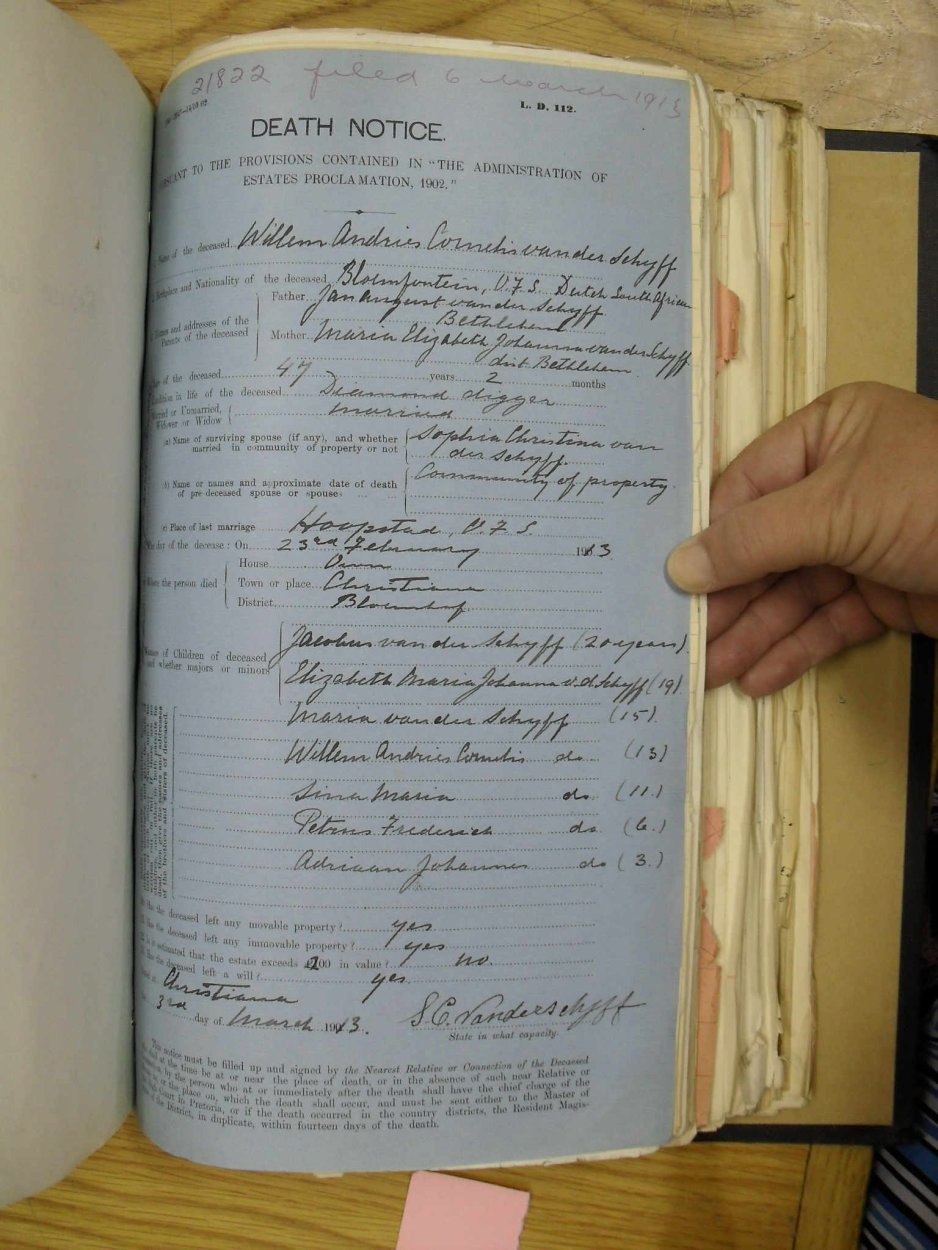 21822 filed 6 March 1913
L. D. 112.
DEATH NOTICE.
TO THE PROVISIONS CONTAINED IN "THE ADMINISTRATION OF
ESTATES PROCLAMATION, 1902."
Name of the deceased Willem Andries Cornelis van der Schyff
Birthplace and Nationality of the deceased Bloemfontein, O.F.S. Dutch South African
Names and addresses of the Parents of the deceased
Father Jan August van der Schyff
Bethlehem
Mother Maria Elizabeth Johanna van der Schyff
dist Bethlehem
of the deceased 47 years 2 months
in life of the deceased Diamond digger
Married or Unmarried, Widower or Widow married
(a) Name of surviving spouse (if any), and whether married in community of property or not Sophia Christina van
der Schyff
(b) Name or names and approximate date of death of pre-deceased spouse or spouses Community of property
(c) Place of last marriage Hoopstad, O.F.S.
day of the decease: On 23rd February 1913
Where the person died
House Own
Town or place Christiana
District Bloemhof
Names of Children of deceased and whether majors or minors
Jacobus van der Schyff (20 years)
Elizabeth Maria Johanna v.d. Schyff (19)
Maria van der Schyff (15)
Willem Andries Cornelis do (13)
Sina Maria do (11)
Petrus Frederick do (6)
Adriaan Johannes do (3)
of the brothers and sisters of deceased.
the deceased left any movable property? yes
the deceased left any immovable property? yes
estimated that the estate exceeds in value? no
the deceased left a will? yes
Christiana
3rd day of March 1913.
S.C. Vanderschyff
State in what capacity.
This notice must be filled up and signed by the Nearest Relative or Connection of the Deceased
at the time be at or near the place of death, or in the absence of such near Relative or
by the person who at or immediately after the death shall have the chief charge of the
or the place on, which the death shall occur, and must be sent either to the Master of
Court in Pretoria, or if the death occurred in the country districts, the Resident Magis-
of the District, in duplicate, within fourteen days of the death.